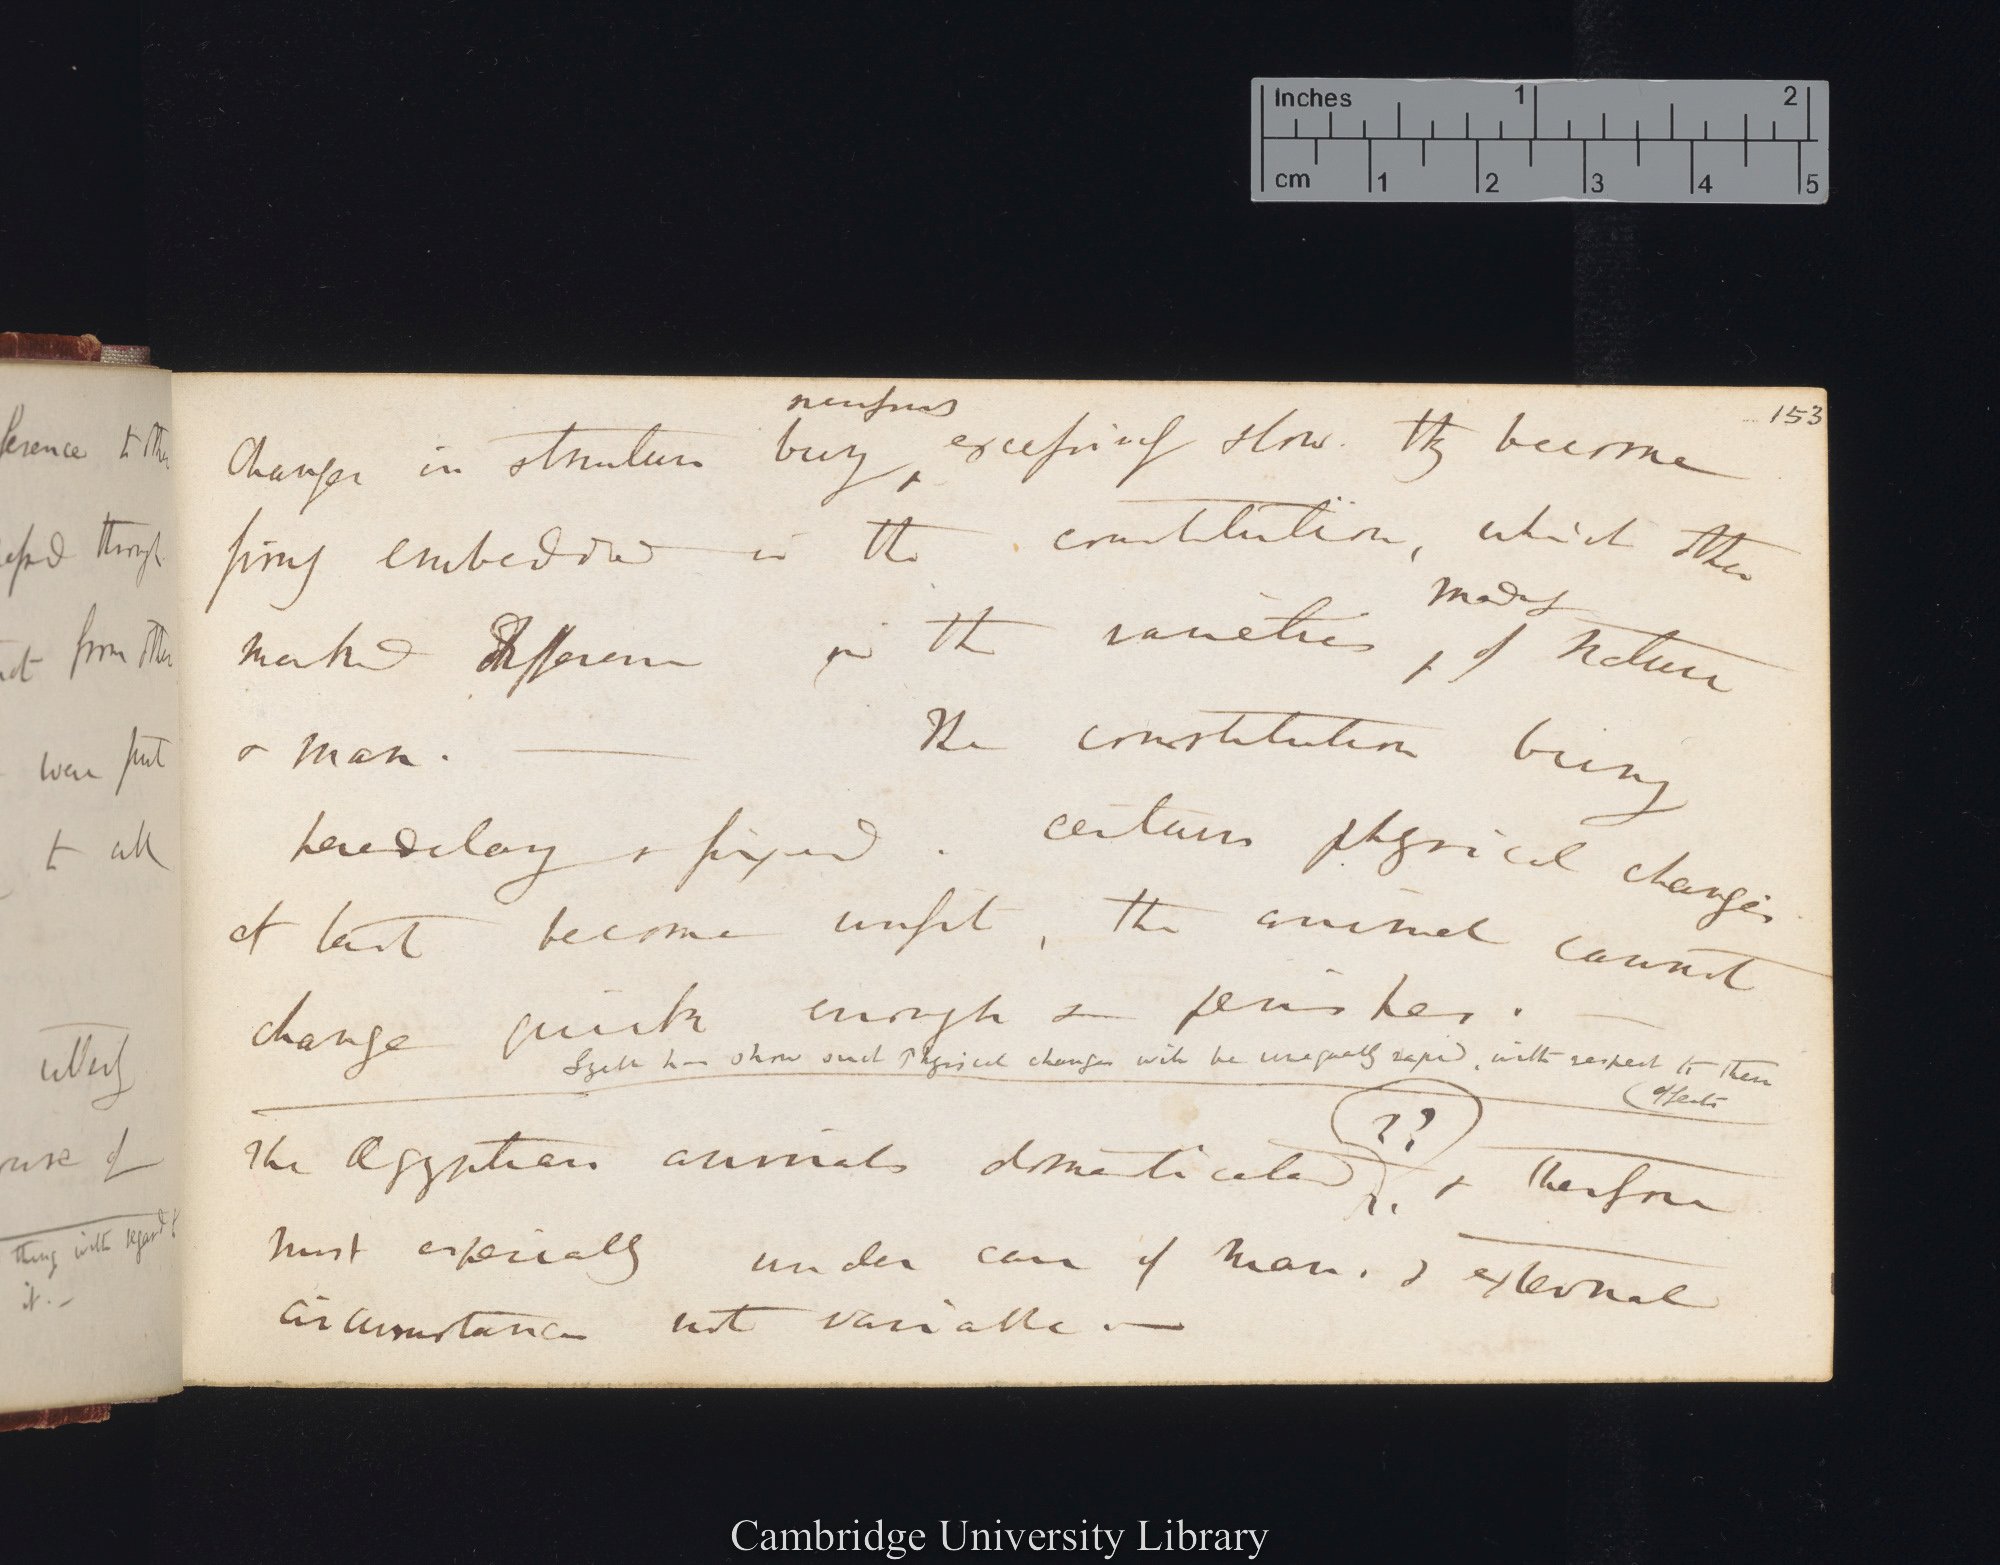 Inches 1 2
cm 1 2 3 4 5
153
necessarily
Changes in structure being excessively slow. they become
firmly embedded in the constitution, which other
made
marked difference in the varieties of Nature
& man. — The constitution being
hereditary & fixed. certain physical changes
at last become unfit, the animal cannot
change quick enough & perishes. —
Lyell has shown such Physical changes will be unequally rapid, with respect to their
effects
??
The Egyptian animals domesticated ?. & therefore
most especially under care of Man. & external
circumstances not variable. —
ference to other
through
from other
were put
to all
utterly
cause of
thing with regard to
it. —
Cambridge University Library